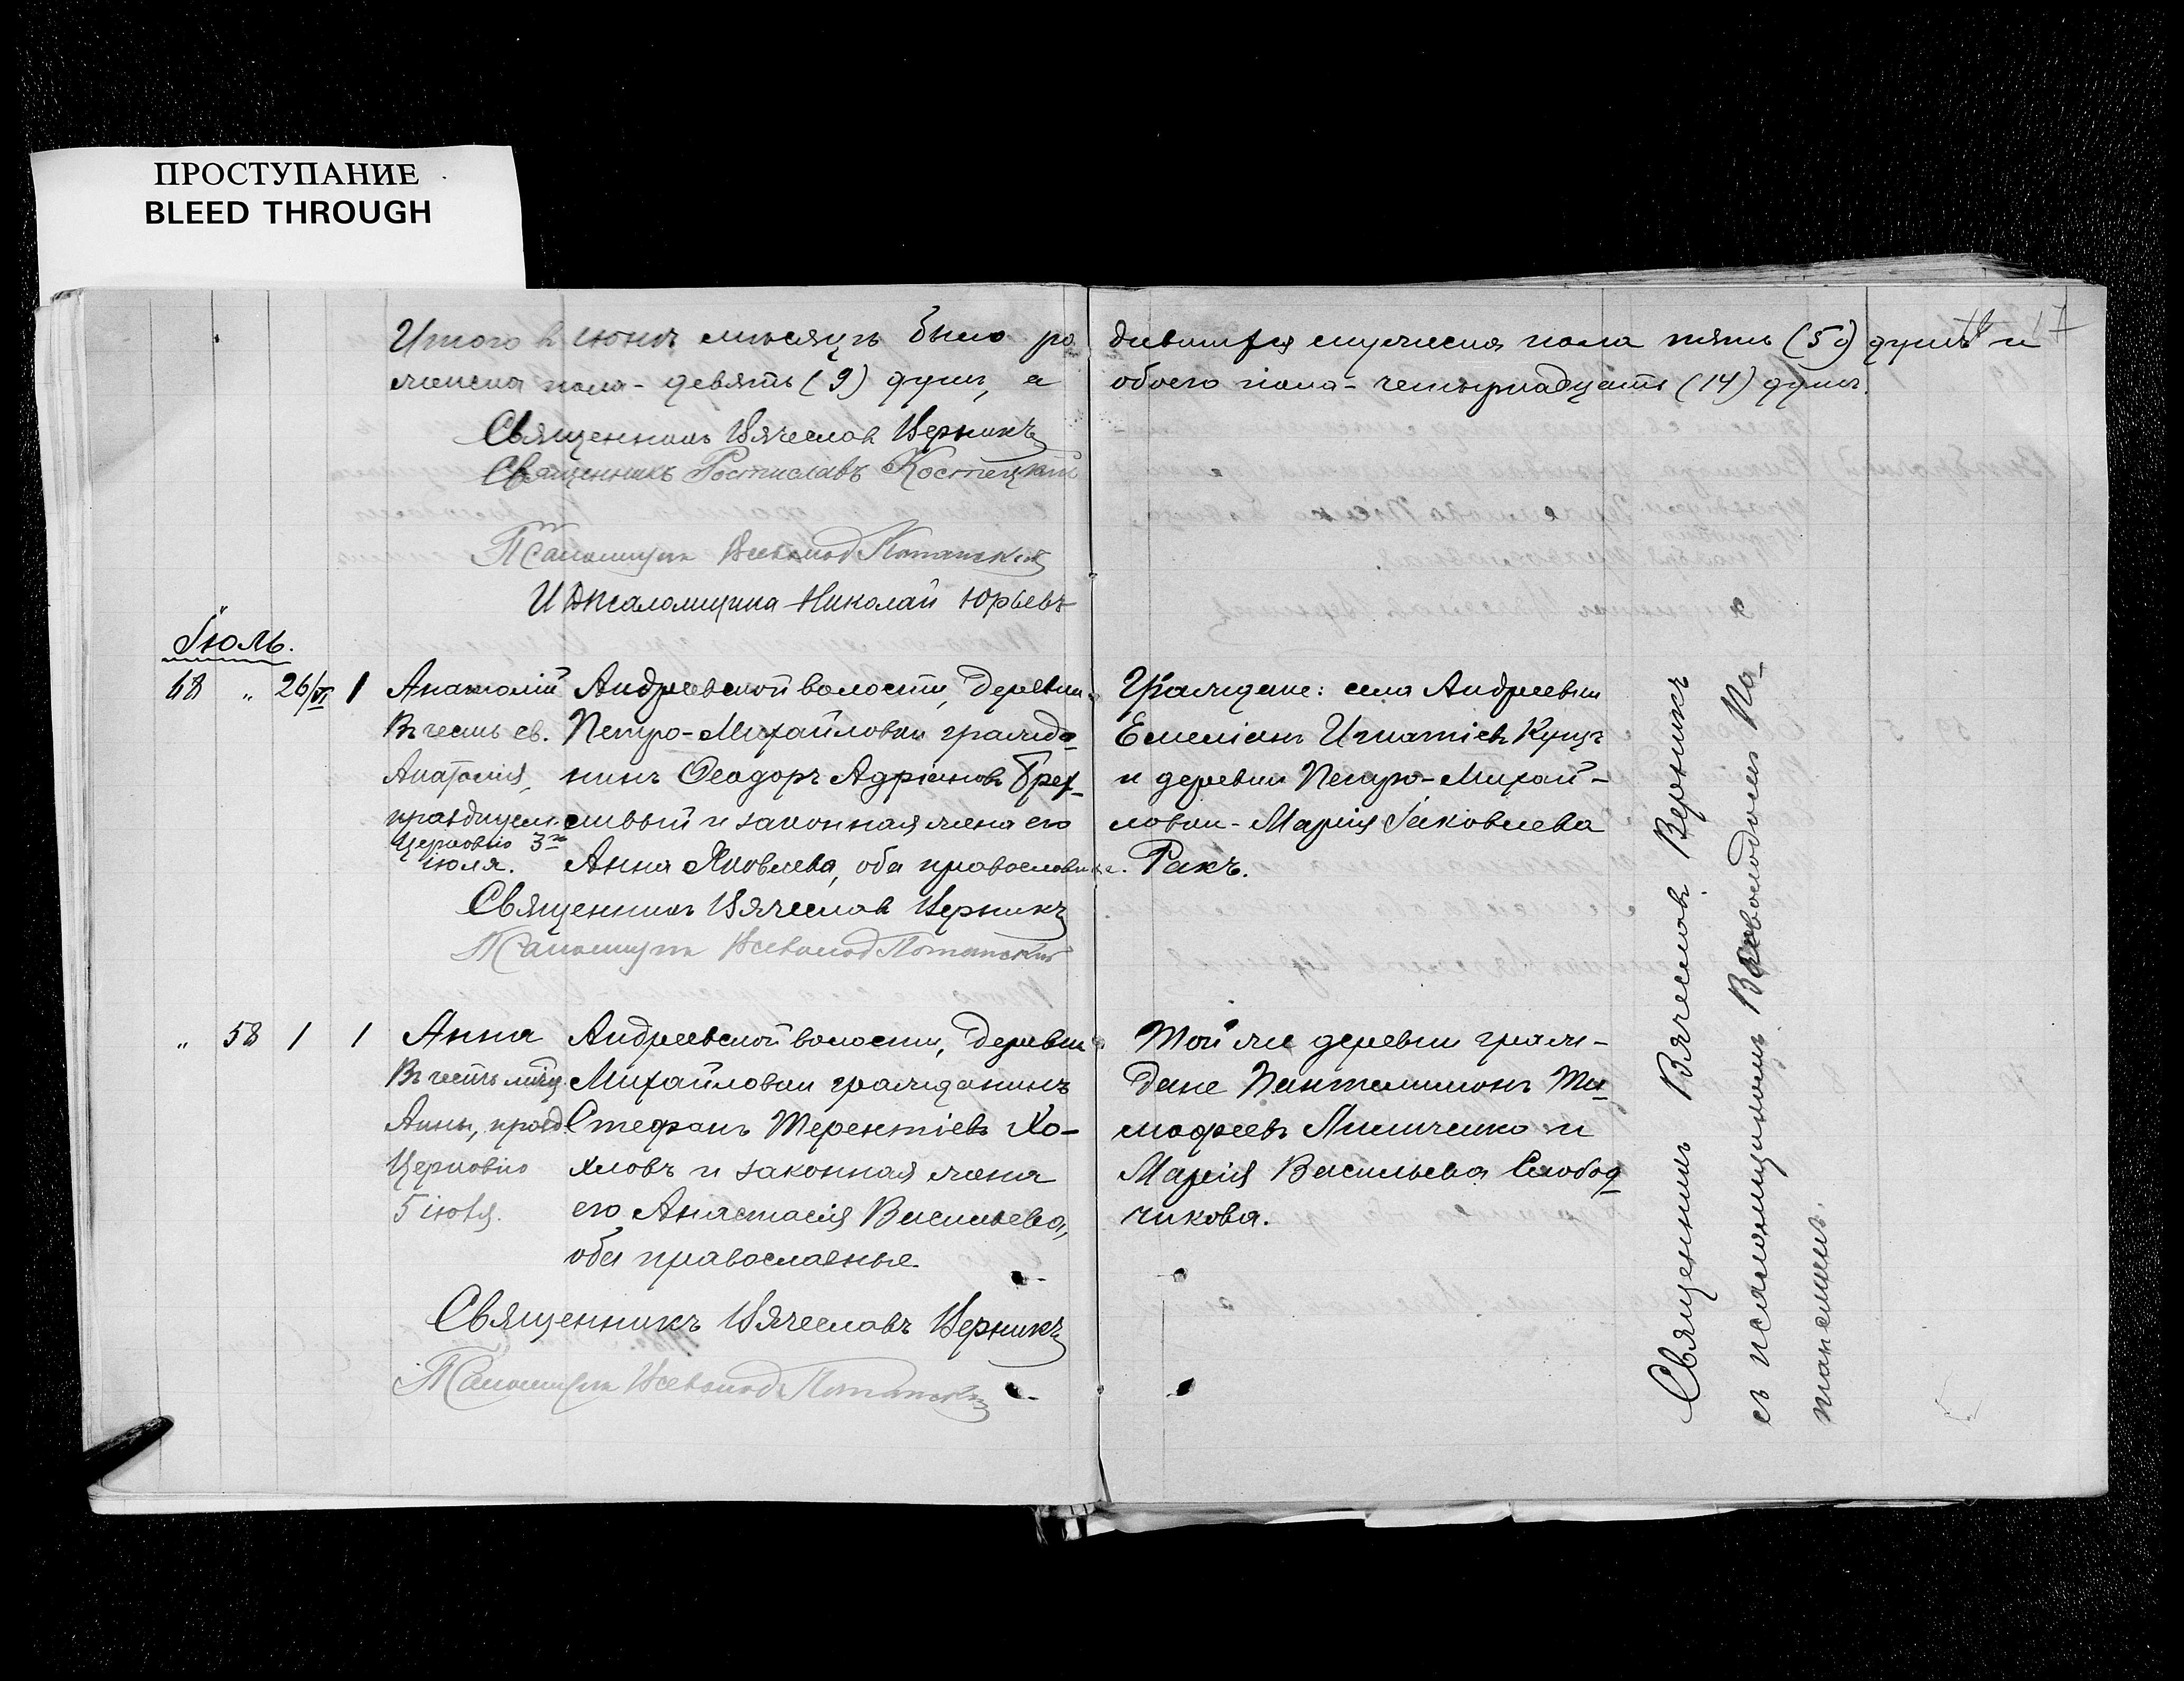 ПРОСТУПАНИЕ
BLEED THROUGH
17
Итого в іюнѣ мѣсяцѣ было ро дившихся мужескаго пола пять (5) душъ и
женска пола - девять (9) душ, а обоего пола - четырнадцать (14) душъ.
Священникъ Вячеслав Верникъ
Священникъ Ростиславъ Костецкій
Псаломщикъ Всеволод Потапскій
И д псаломщика Николай Юрьевъ
Іюль.
68 „ 26/VI 1
Анатолій
Въ честь св.
Анатолія,
празднуем.
Церковью 3го
іюля.
Андреевской волости, деревни
Петро-Михайловки гражда-
нинъ Ѳеодоръ Адріановъ Брех-
ливый и законная жена его
Анна Яковлева, оба православные.
Граждане: села Андреевки
Емеліанъ Игнатіевъ Куцъ
и деревни Петро-Михай-
ловки - Марія Іаковлева
Ракъ.
Священникъ Вячеслав Верникъ
Псаломщикъ Всеволод Потапскій
„ 58 1 1
Анна
Въ честь муч.
Анны, празд.
Церковію
5 іюля.
Андреевской волости, деревни
Михайловки гражданинъ
Стефанъ Терентіевъ Хо-
хловъ и законная жена
его Анастасія Васильева,
оба православные.
Той же деревни граж-
дане Пантелимонъ Ти-
мофеевъ
Марія Васильева Слобод-
чикова.
Священникъ Вячеславъ Верникъ
Псаломщикъ Всеволодъ Потапскій
Священникъ Вячеславъ Верникъ
съ псаломщикомъ Всеволодомъ По-
тапскимъ.